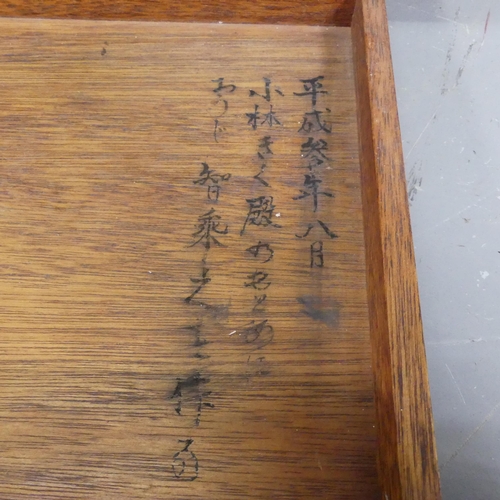 平成参年八月
小林きく殿のもとめに
おうじ
智乘之 作